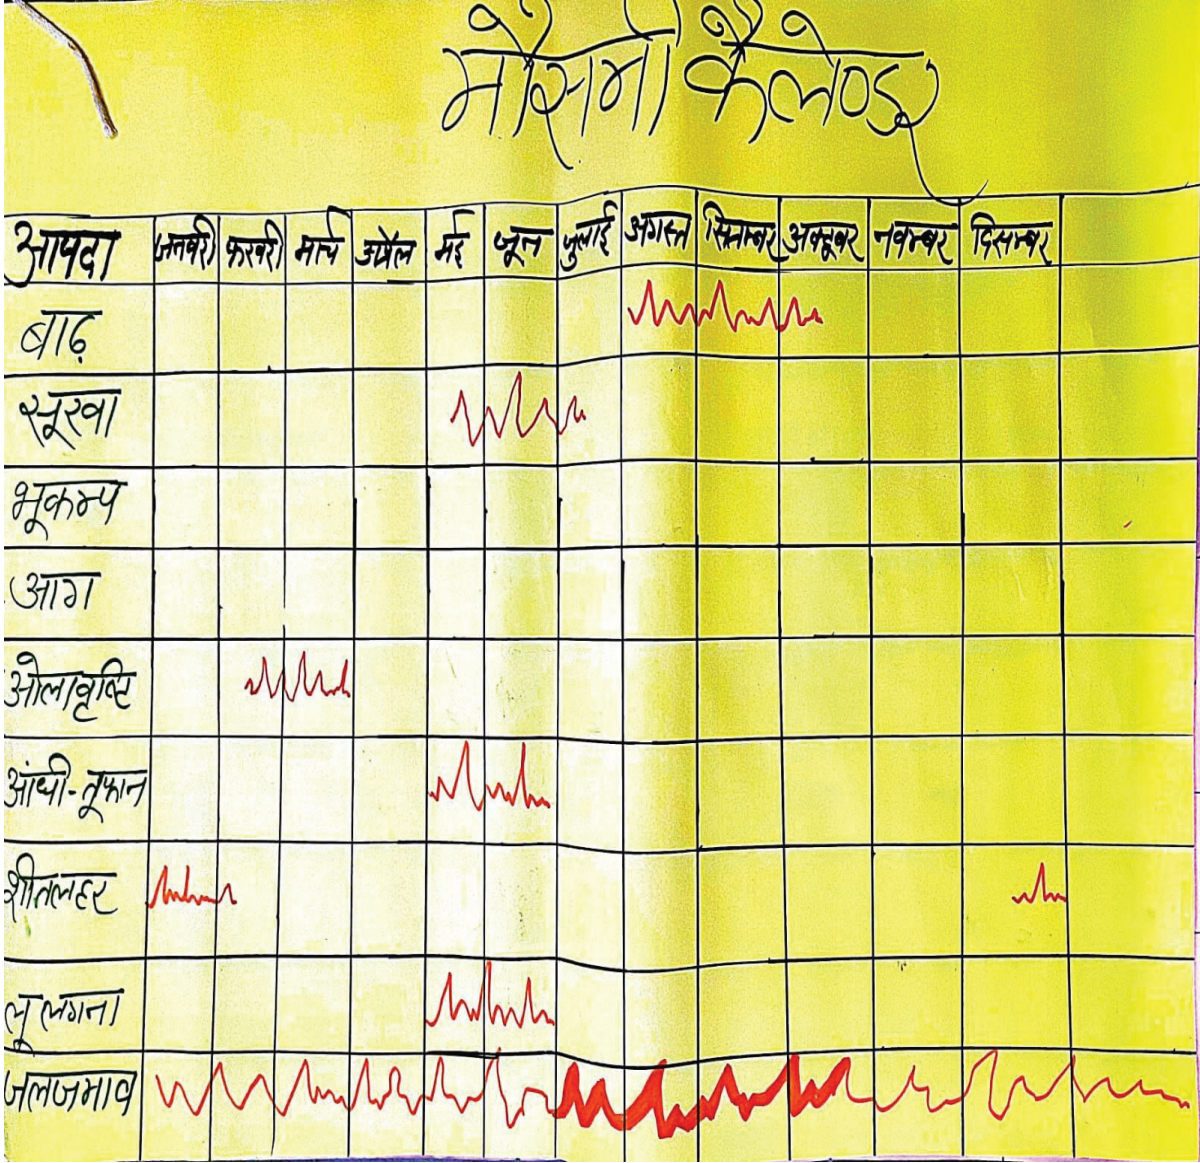 मौसमी कैलेण्डर
आपदा जनवरी फरवरी मार्च अप्रैल मई जून जुलाई अगस्त सितम्बर अक्टूबर नवम्बर दिसम्बर
बाढ़
सूखा
भूकम्प
आग
ओलावृष्टि
आंधी-तूफान
शीतलहर
लू लगना
जलजमाव